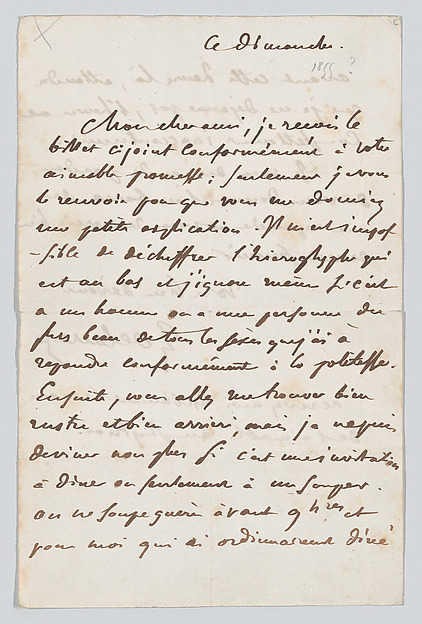 Ce dimanche.
1855 ?
Mon cher ami, je reçois le
billet ci joint conformément à votre
aimable promesse; seulement je vous
le renvoie pour que vous me donniez
une petite explication. Il m'est impos
-sible de déchiffrer l'hieroglyphe qui
est au bas et j'ignore meme si c'est
a un homme ou a une personne du
plus beau de tous les sexes que j'ai à
repondre conformément à la politesse.
Ensuite, vous allez me trouver bien
rustre et bien arriéré, mais je ne puis
deviner non plus si c'est une invitation
à diner ou seulement à un souper.
On ne soupe guère avant 9 hres et
pour moi qui ai ordinairement diné